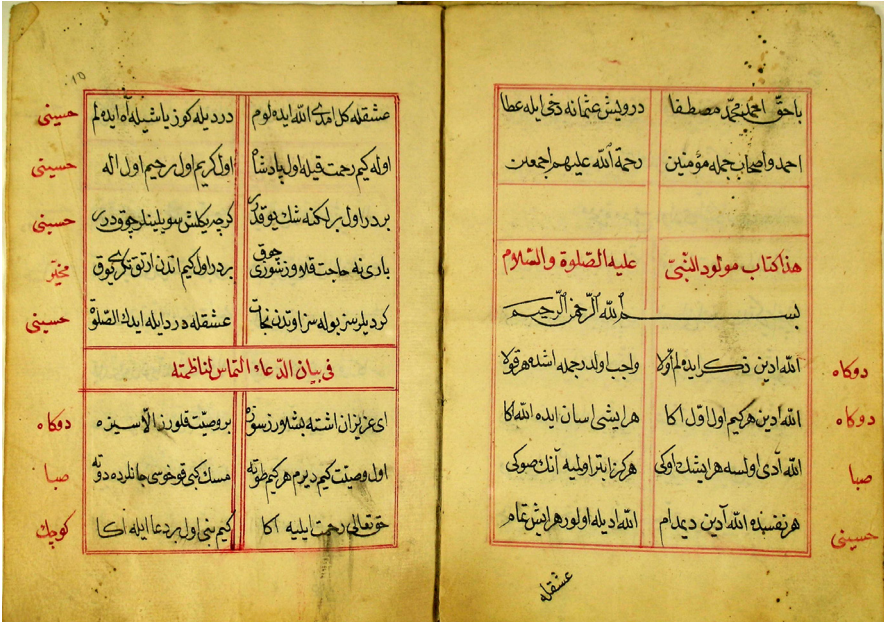 باحقّ احمد محمّد مصطفا درويش عثمانه دخى ايله عطا
احمد واصحاب جمله مؤمنين رحمة الله عليهم اجمعين
هذا كتاب مولود النبىّ عليه الصّلوة والسّلام
بسم الله الرّحمن الرّحيم
دوكاه الله ادين ذكر ايده لم اوّلا واجب اولدر جمله اشده هر قولا
دوكاه الله ادين هركيم اول اوّل اكا هر ايشى اسان ايده الله اكا
صبا الله آدى اولسه هر ايشك اوكى هركز ابتر اوليه آنك صوكى
حسينى هر نفسنده الله آدين ديمدام الله اديله اولور هر ايش تمام
عشقله
١٥
عشقله كل امدى الله ايده لوم درد يله كوز ياشيله آه ايده لم حسينى
اوله كيم رحمت قيله اول پادشاه اول كريم اول رحيم اول اله حسينى
بردر اول برلكنه شك يوقدر كرچه يكلش سويلينلر چوقدرر حسينى
بارى نه حاجت قلاوز سوزى چوق بردر اول كيم اندن ارتق تكرى يوق مخيّر
كرديلرسز بوله سز اوتدن نجات عشقله درد ايله ايدك الصّلوة حسينى
فى بيان الدّعاء التماس لناظمته
اى عزيزان اشته بشلارز سوزه بر وصيّت قلورز الّا سيزه دوكاه
اول وصيّت كيم ديرم هركيم طوته مسك كبى قوخوسى جانلرده دوته صبا
حق تعالى رحمت ايليه اكا كيم بنى اول بر دعا ايله اكا كوچك